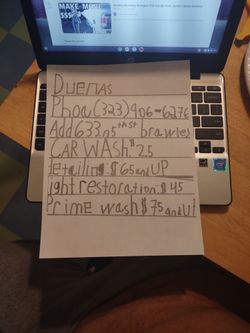 MAKE MORE
$$$
DUENAS
Phoa(323)406-6276
Add 633 n 5th st brawles
CAR WASH $25
Detailing $65 and UP
light restoration: $45
Prime wash $75 and UP